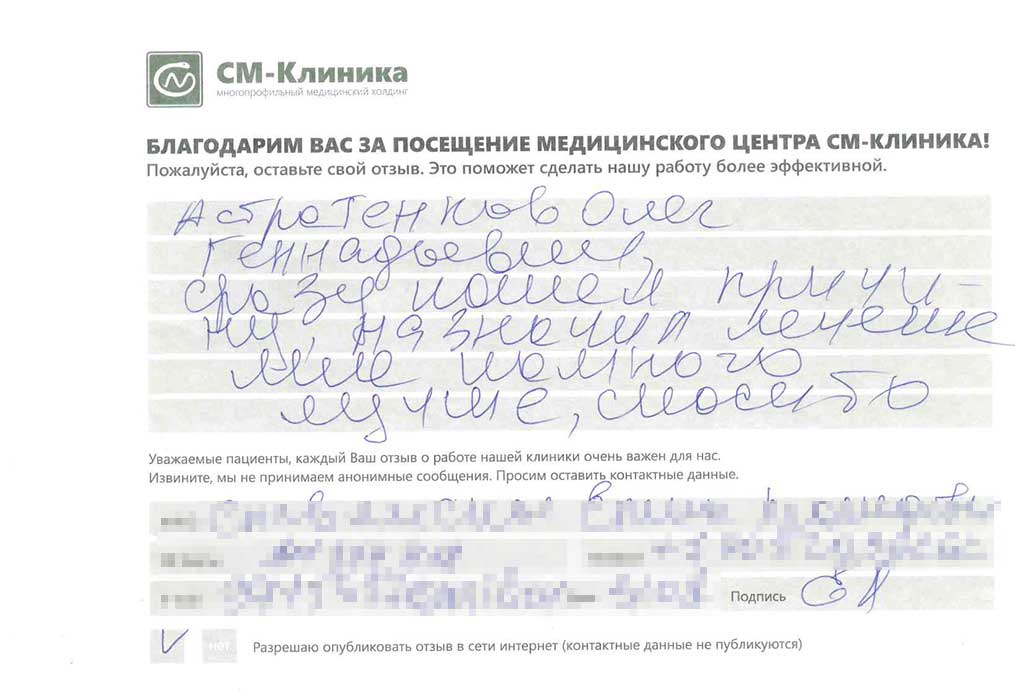 СМ-Клиника
многопрофильный медицинский холдинг
БЛАГОДАРИМ ВАС ЗА ПОСЕЩЕНИЕ МЕДИЦИНСКОГО ЦЕНТРА СМ-КЛИНИКА!
Пожалуйста, оставьте свой отзыв. Это поможет сделать нашу работу более эффективной.
Астратенков Олег
Геннадьевич,
сразу нашел причи-
ну, назначил лечение
мне намного
лучше, спасибо
Уважаемые пациенты, каждый Ваш отзыв о работе нашей клиники очень важен для нас.
Извините, мы не принимаем анонимные сообщения. Просим оставить контактные данные.
Подпись
НЕТ Разрешаю опубликовать отзыв в сети интернет (контактные данные не публикуются)